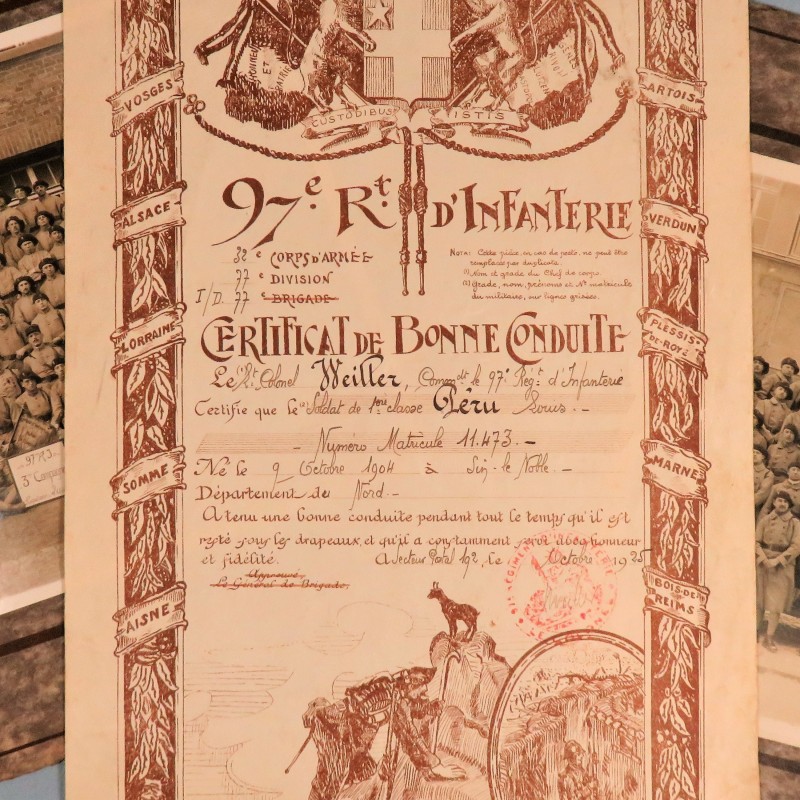 HONNEUR
ET
CUSTODIBUS ISTIS
VOSGES
ARTOIS
97e Rt. D'INFANTERIE
ALSACE
VERDUN
32e CORPS D'ARMÉE
77e DIVISION
I/D. 77e BRIGADE
NOTA: Cette pièce, en cas de perte, ne peut être
remplacée par duplicata.
Nom et grade du Chef de corps.
Grade, nom, prénoms et No matricule
du militaire, sur lignes grisées.
LORRAINE
PLESSIS-
DE-ROYE
CERTIFICAT DE BONNE CONDUITE
Le Lt. Colonel Weiller, Commdt le 97e Régt d'Infanterie
Certifie que le Soldat de 1ère classe Péru Louis.-
- Numéro Matricule 11.473.-
Né le 9 Octobre 1904 à Sin-le Noble.-
Département du Nord.-
SOMME
MARNE
A tenu une bonne conduite pendant tout le temps qu'il est
resté sous les drapeaux, et qu'il a constamment servi avec honneur
et fidélité. A Secteur Postal 192, le Octobre 1925
Approuvé
Le Général de Brigade,
AISNE
BOIS-DE-
REIMS
97-113
3e Compagnie